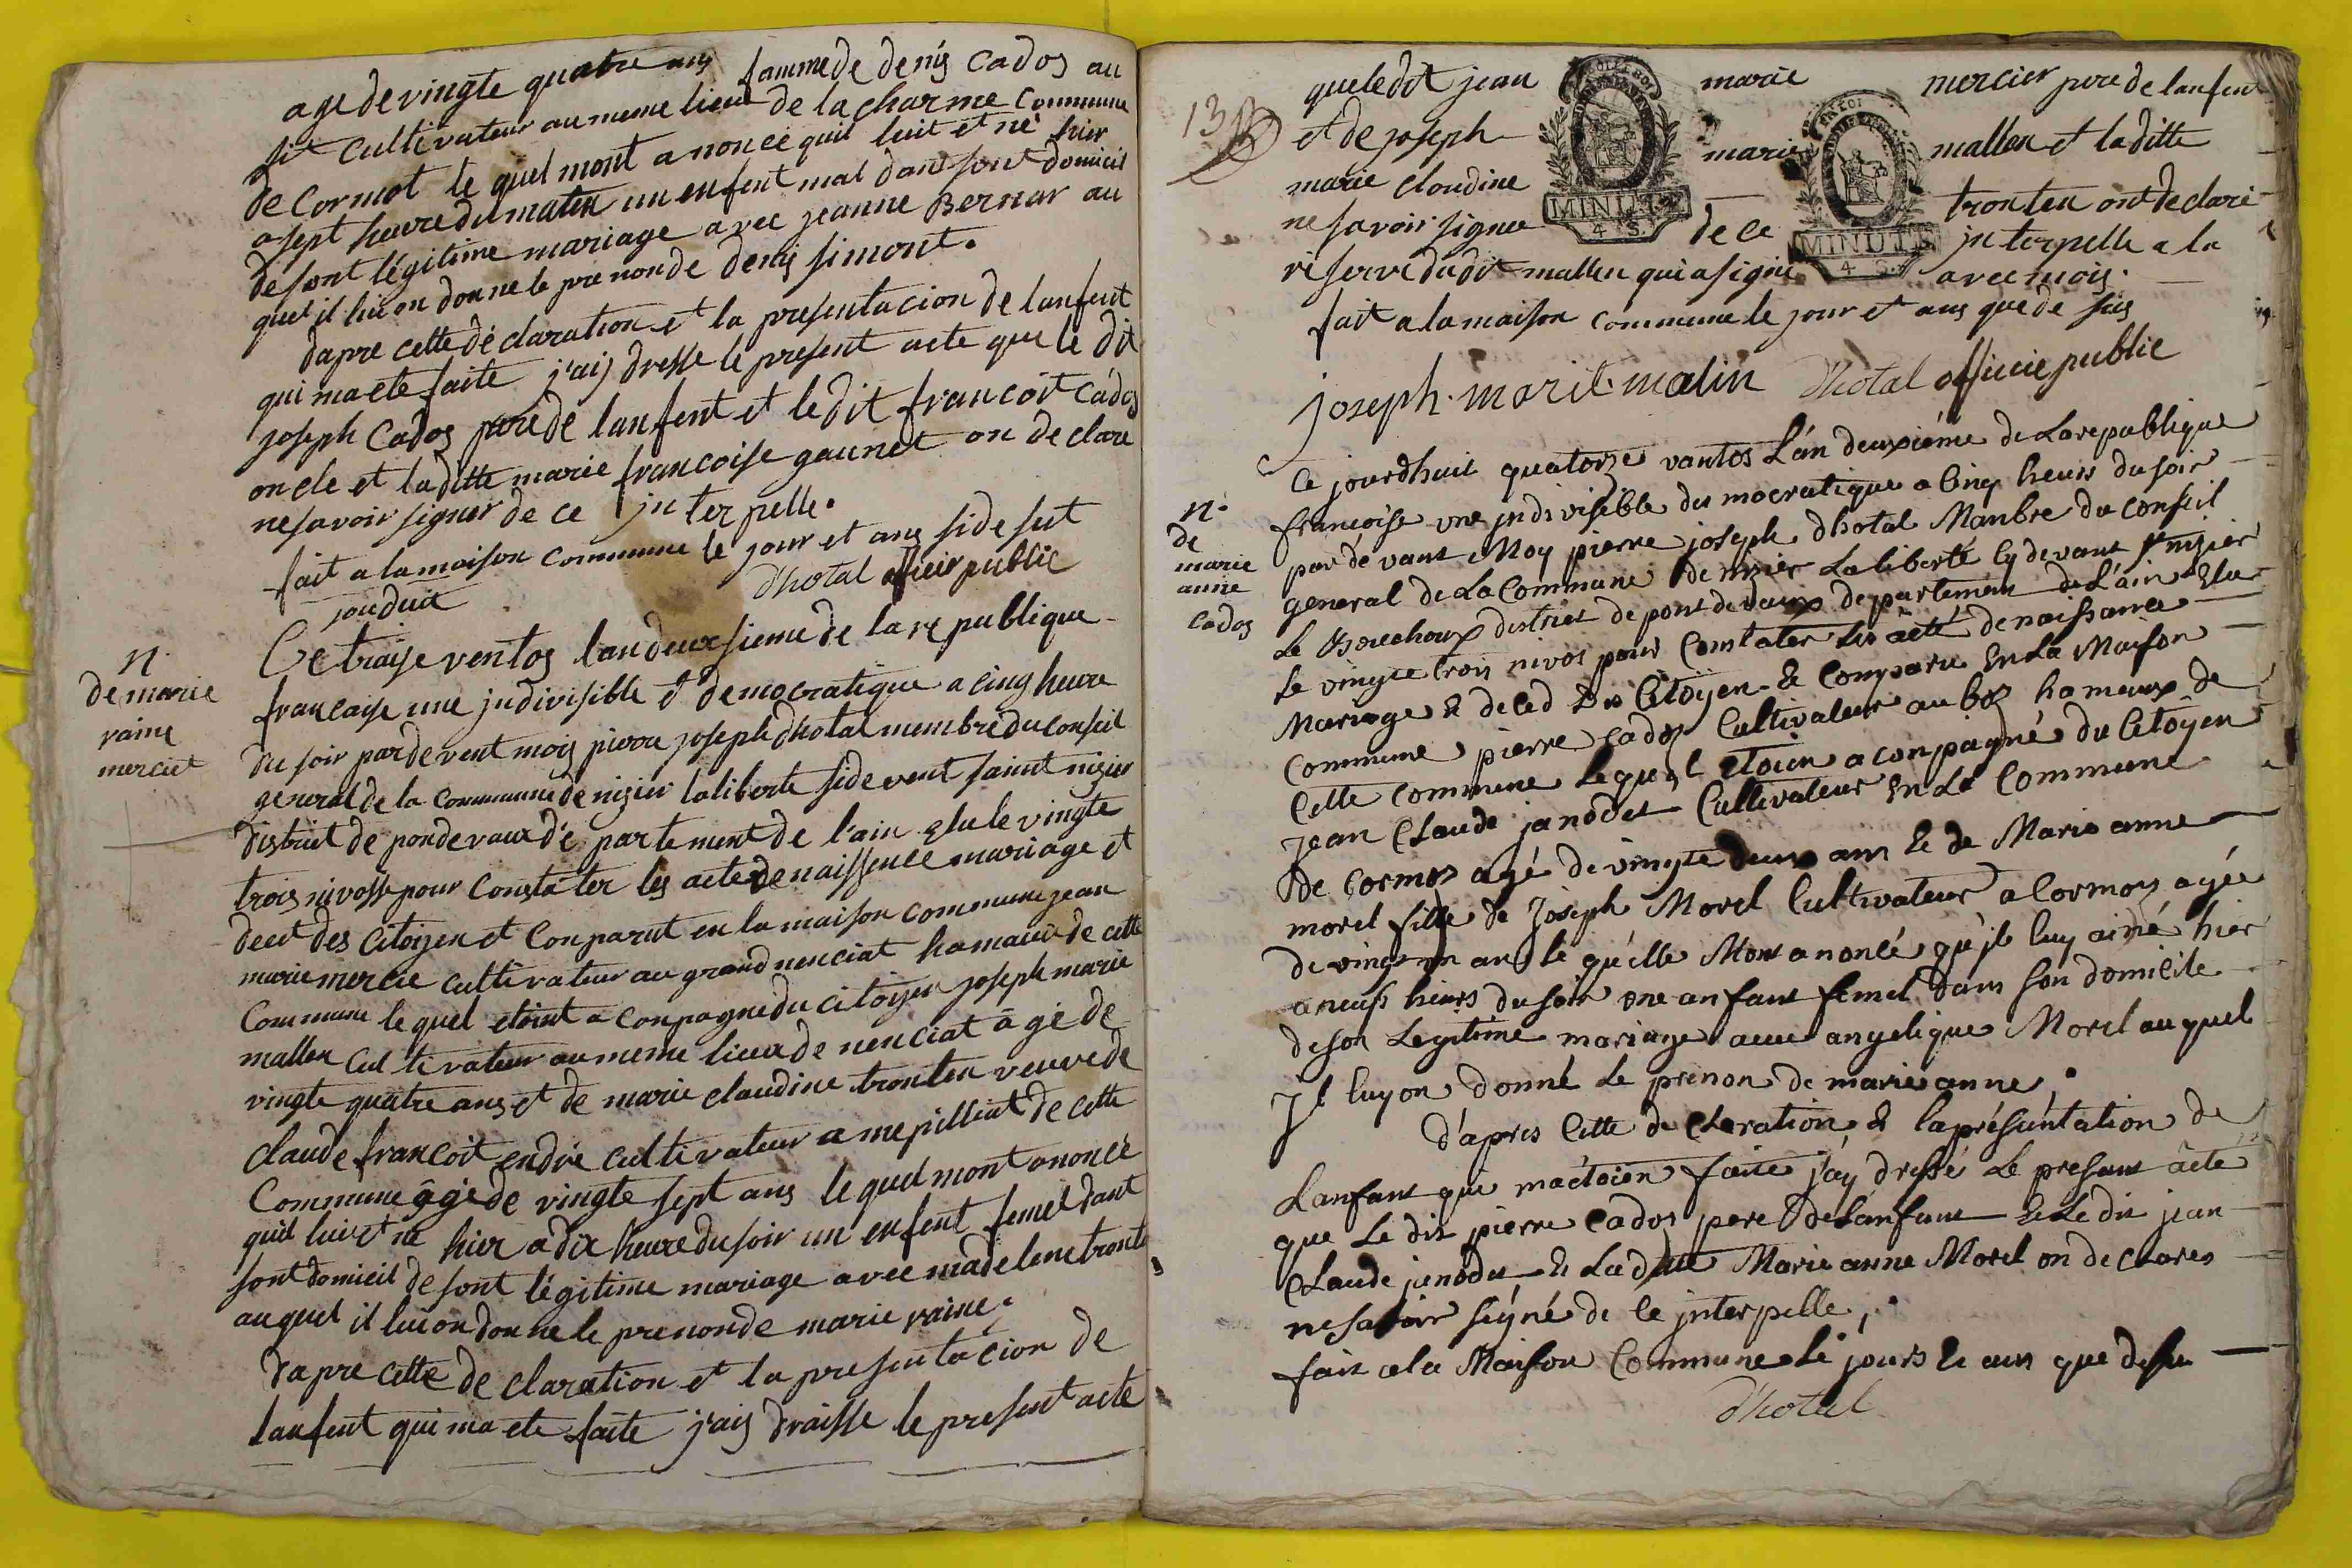 age de vingte quatre ans famme de denis cados au
sit cultivateur au meme lieux de la charme commune
de cormot le quel mont a nonce quil luit et né hier
a sept heure du maten un enfent mal dans sont domicil
de sont légitime mariage avec jeanne Bernar au
quel il lui on donne le prenon de denis simont.
dapre cette déclaration et la presentacion de lanfent
qui ma ete faite j'aij dresse le present acte que le dit
joseph Cados pere de lanfent et le dit francoit Cados
oncle et la ditte marie francoise gaunet on declare
ne savoir signer de ce jnterpelle.
fait a la maison commune le jour et ans side sut
jouduit dhotal officier public
n.
de marie
raine
merciet
Ce traise ventos lan deuxsieme de la republique
francaise une jndivisible et democratique a cinq heure
du soir pardevent mois pierre joseph dhotal membre du conseil
general de la commune de nizier laliberte sidevent saint nizier
district de pondevaux dé partement de l'ain elu le vingte
trois nivosse pour constater les acte de naissence mariage et
decet des citoijen et conparut en la maison commune jean
marie mercie cultivateur au grand nenciat hamaux de cette
Commune le quel etoint a conpagne du citoijen joseph marie
mallen cultivateur au meme lieux de nenciat âgé de
vingte quatre ans et de marie claudine tronten veuve de
claude francoit endré cultivateur a mepilliat de cette
Commune âgé de vingte sept ans le quel mont anoncé
quil lui et né hier a dix heure du soir un enfent femel dant
sont domicil de sont légitime mariage avec madelene tronte
au quel il lui on donne le prenon de marie raine.
dapre cette declaration et la presentacion de
lanfent qui ma ete faite j'aij draisse le present acte
13
que ledit jean marie mercier pere de lanfent
et de joseph marie mallen et laditte
marie cloudine tronten ont declare
ne savoir signer de ce jnterpelle a la
réserve dudit mallen qui a signé avec mois.
fait a la maison commune le jour et ans que de sus
joseph. marie. malin dhotal officie public
n.
de
marie
anne
cados
Ce jourdhuit quatorze vantos L'an deuxiéme de La republique
francoise une jndivisible du mocratique a Cinq heurs du soir
par dé vant Moy pierre joseph dhotal Manbre du conseil
general de La Commune de nizier La liberté Cy devant st nizier
Le Bouchoux district de pont de vaux departement de L'ain Elu
Le vingte trois nivos pour Constater Les acté de naissance
Mariage & deced des Citoyen & Comparu En La Maison
Commune pierre Cados Cultivateur au bos hameaux de
Cette commune Lequel etoien aconpagné du Citoyen
jean Claude janodet Cultivateur En La Commune
de Cormos agé de vingte deux ans & de Marie anne
morel fille de Joseph Morel Cultivateur a Cormoz agée
de vingt un ans le quélle Mont anoncé qu'jl luy ainé hier
a neufs heurs du soir une anfant femel dans son domicile
de son Legitime mariage avec angelique Morel au quel
Jl luy on donné Le prenon de marie anne.
d'apres Cette de Claration & laprésúntation de
Lanfant qui ma étoien faite j'ay dressé Le present âcte
que Le dit pierre Cados pere de Lanfant & Le dit jean
Claude janodet & La dite Marie anne Morel on declares
ne savoir signé de Ce jnterpelle,.
fait a la Maison Commune Le jours & ans que desu
dhotal
MINUTE
4 S.
MINUTE
4 S.